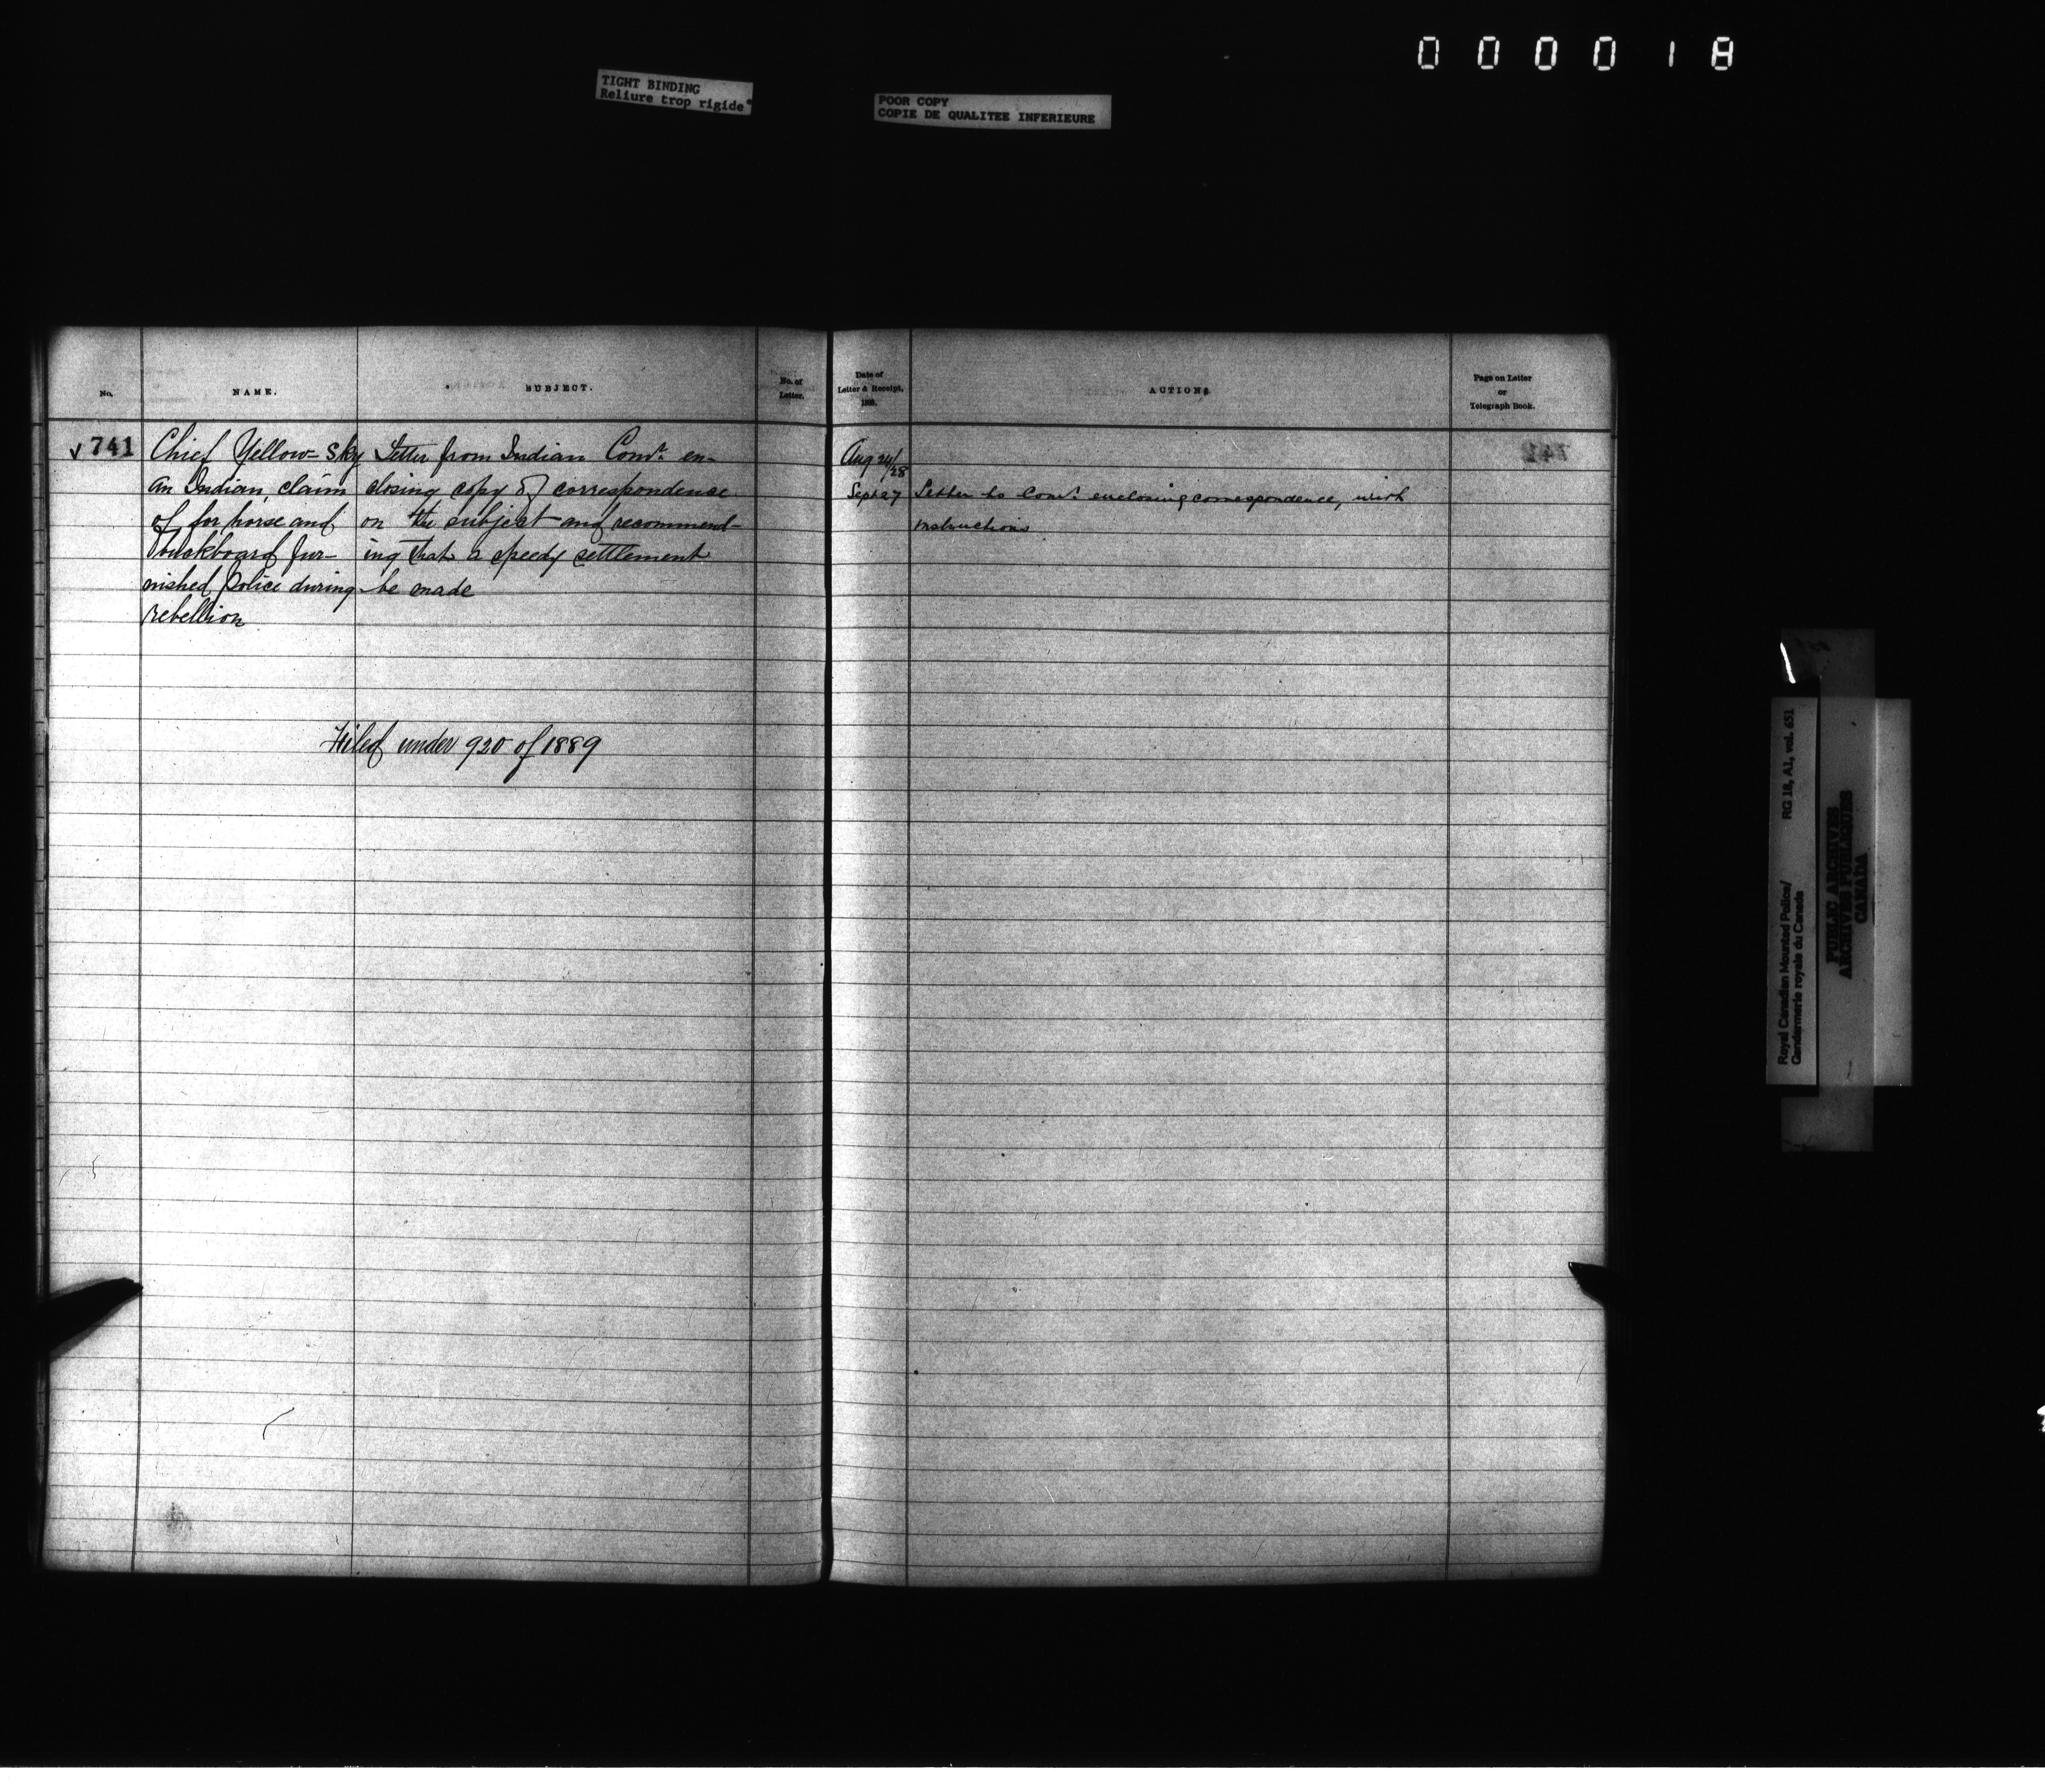 000018
TIGHT BINDING
Reliure trop rigide
POOR COPY
COPIE DE QUALITEE INFERIEURE
No.
NAME.
SUBJECT.
No. of
Letter.
Date of
Letter & Receipt,
188 .
ACTION
Page on Letter
or
Telegraph Book.
√ 741
Chief Yellow-Sky
an Indian, claim
of for horse and
buckboard fur-
nished Police during
rebellion
Letter from Indian Comr. en-
closing copy of correspondence
on the subject and recommend-
ing that a speedy settlement
be made
Aug 24/28
Sept 27
Letter to Comr. enclosing correspondence, with
instructions
Filed under 920 of 1889
742
Royal Canadian Mounted Police/
Gendarmerie royale du Canada
RG 18, A1, vol. 651
PUBLIC ARCHIVES
ARCHIVES PUBLIQUES
CANADA